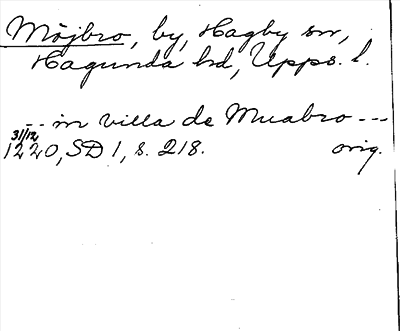 Möjbro, by, Hagby sn,
Hagunda hd, Upps. l.
--- in villa de Muabro ---
31/12
1220, SD 1, s. 218. orig.